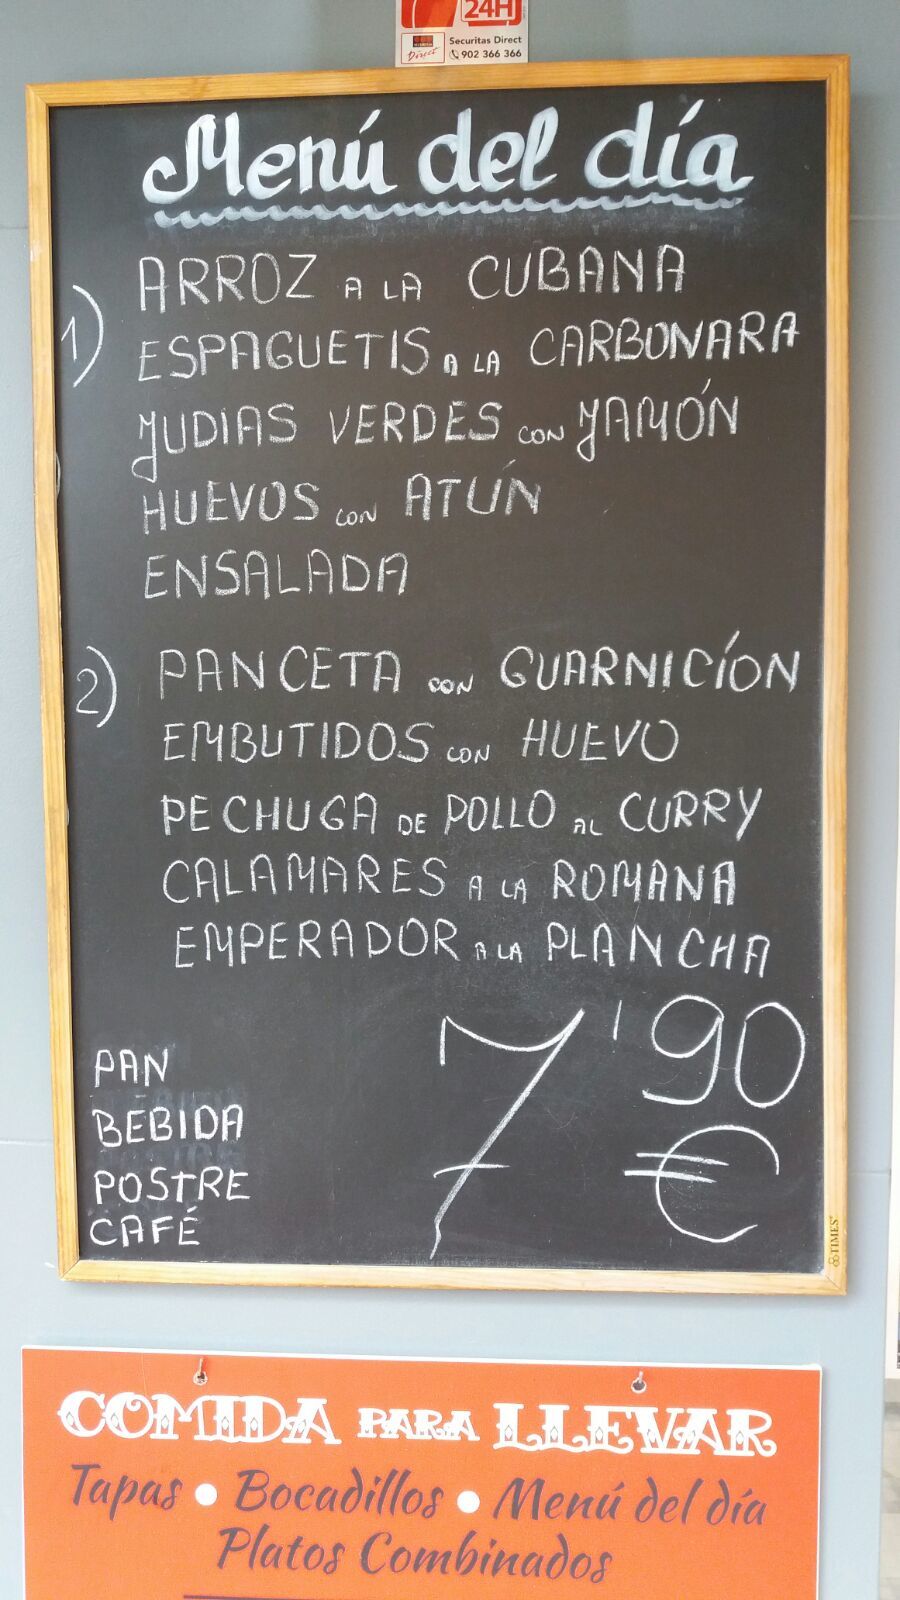 24H
Securitas Direct
Direct
902 366 366
Menú del día
1)
ARROZ A LA CUBANA
ESPAGUETIS A LA CARBONARA
JUDIAS VERDES CON JAMÓN
HUEVOS CON ATÚN
ENSALADA
2)
PANCETA CON GUARNICÍON
EMBUTIDOS CON HUEVO
PECHUGA DE POLLO AL CURRY
CALAMARES A LA ROMANA
EMPERADOR A LA PLANCHA
PAN
BEBIDA
POSTRE
CAFÉ
7'90
€
TIMES
COMIDA PARA LLEVAR
Tapas • Bocadillos • Menú del día
Platos Combinados